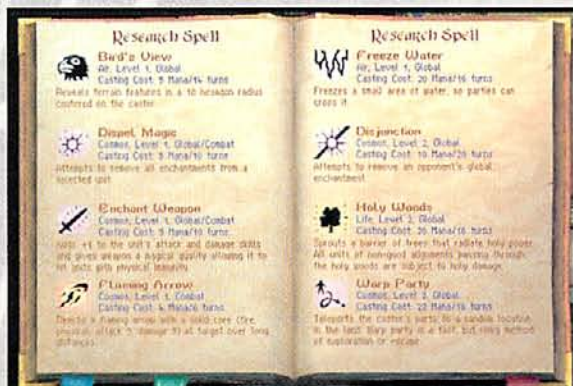 Research Spell
Bird's View
Air, Level 1, Global
Casting Cost: 5 Mana/14 turns
Reveals terrain features in a 10 hexagon radius
centered on the caster.
Dispel Magic
Cosmos, Level 1, Global/Combat
Casting Cost: Mana/10 turns
Attempts to remove all enchantments from a
selected unit.
Enchant Weapon
Cosmos, Level 1, Global/Combat
Casting Cost: Mana/10 turns
Adds +1 to the unit's attack and damage skills
and gives weapon a magical quality allowing it to
hit units with physical immunity.
Flaming Arrow
Cosmos, Level 1, Combat
Casting Cost: Mana/6 turns
Directs a flaming arrow with a solid core (fire,
physical, attack damage at target over long
distances.
Research Spell
Freeze Water
Air, Level 1, Global
Casting Cost: 20 Mana/16 turns
Freezes a small area of water, so parties can
cross it.
Disjunction
Cosmos, Level 2, Global
Casting Cost: 10 Mana/20 turns
Attempts to remove an opponent's global
enchantment.
Holy Woods
Life, Level 2, Global
Casting Cost: Mana/16 turns
Sprouts a barrier of trees that radiate holy power.
All units of non-good alignments passing through
the holy woods are subject to holy damage.
Warp Party
Cosmos, Level 2, Global
Casting Cost: 20 Mana/16 turns
Teleports the caster's party to a random location
in the land. Warp party is a fast, but risky method
of exploration or escape.